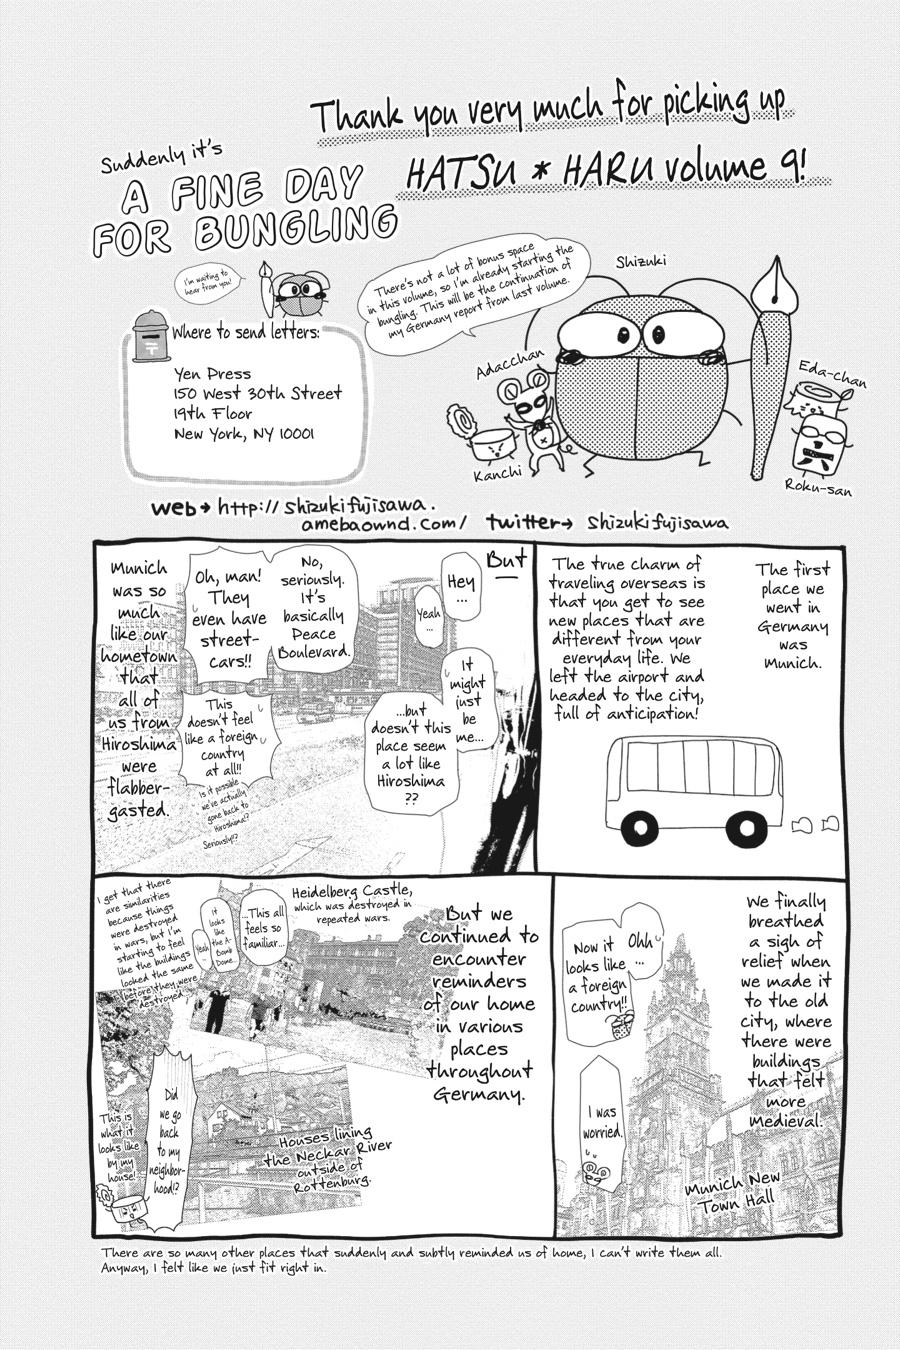 Thank you very much for picking up
HATSU * HARU volume 9!
Suddenly it's
A FINE DAY
FOR BUNGLING
I'm waiting to
hear from you!
Where to send letters:
Yen Press
150 West 30th Street
19th Floor
New York, NY 10001
There's not a lot of bonus space
in this volume, so I'm already starting the
bungling. This will be the continuation of
my Germany report from last volume.
Shizuki
Adacchan
Kanchi
Eda-chan
Roku-san
web→ http://shizukifujisawa.
amebaownd.com/ twitter→ shizukifujisawa
The first
place we
went in
Germany
was
Munich.
The true charm of
traveling overseas is
that you get to see
new places that are
different from your
everyday life. We
left the airport and
headed to the city,
full of anticipation!
But
Hey
...
Yeah
...
It
might
just
be
me...
...but
doesn't this
place seem
a lot like
Hiroshima
??
No,
seriously.
It's
basically
Peace
Boulevard.
Oh, man!
They
even have
street-
cars!!
This
doesn't feel
like a foreign
country
at all!!
Is it possible
we've actually
gone back to
Hiroshima!?
Seriously!?
Munich
was so
much
like our
hometown
that
all of
us from
Hiroshima
were
flabber-
gasted.
We finally
breathed
a sigh of
relief when
we made it
to the old
city, where
there were
buildings
that felt
more
Medieval.
Ohh
...
Now it
looks like
a foreign
country!!
I was
worried.
Munich New
Town Hall
But we
continued to
encounter
reminders
of our home
in various
places
throughout
Germany.
Heidelberg Castle,
which was destroyed in
repeated wars.
...This all
feels so
familiar...
It
looks
like
the A-
Bomb
Dome...
Yeah
...
I get that there
are similarities
because things
were destroyed
in wars, but I'm
starting to feel
like the buildings
looked the same
before they were
destroyed...
Houses lining
the Neckar River
outside of
Rottenburg.
Did
we go
back
to my
neighbor-
hood!?
This is
what it
looks like
by my
house!
There are so many other places that suddenly and subtly reminded us of home, I can't write them all.
Anyway, I felt like we just fit right in.